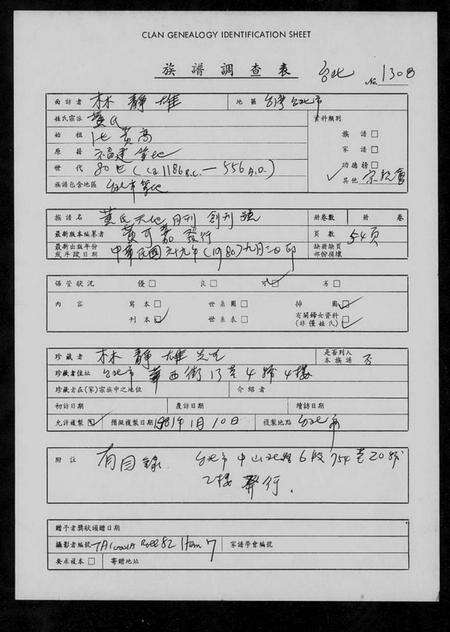 CLAN GENEALOGY IDENTIFICATION SHEET
族譜調查表 台北 No 1308
受訪者 林靜雄 地區 台灣台北市
姓氏宗注 黃氏 資料類別
始祖 1世黃高 族譜□
原籍 福建等地 家譜□
世代 80世(ca 1186 B.C.—556 A.D.) 功德榜□
族譜包含地區 台北市等地 其他 宗親會
族譜名 黃氏天地月刊 創刊號 冊卷數 冊 卷
最新版本編纂者 黃可嘉發行 頁數 54頁
最新出版年份 中華民國六十九年(1980)九月二日印 缺冊缺頁
或手跋日期 部份損壞
保管狀況 優□ 良□ 可□ 劣□
內容 寫本□ 世系圖□ 掃圖□
刊本□ 世系表□ 有關婦女資料(非僅姓氏)□
珍藏者 林靜雄先生 是否列入本族譜 否
珍藏者住址 台北市華西街13巷4號4樓
珍藏者在(家)宗族中之地位 介紹者
初訪日期 度訪日期 續訪日期
允許複製 預擬複製日期 1981年1月10日 複製地點 台北市
附註 有目錄 台北市中山北路6段754巷20號
2樓發行.
贈予者獎狀頒贈日期
攝影者編號 Roll 82 Item 7 家譜學會編號
要求複本□ 寄贈地址